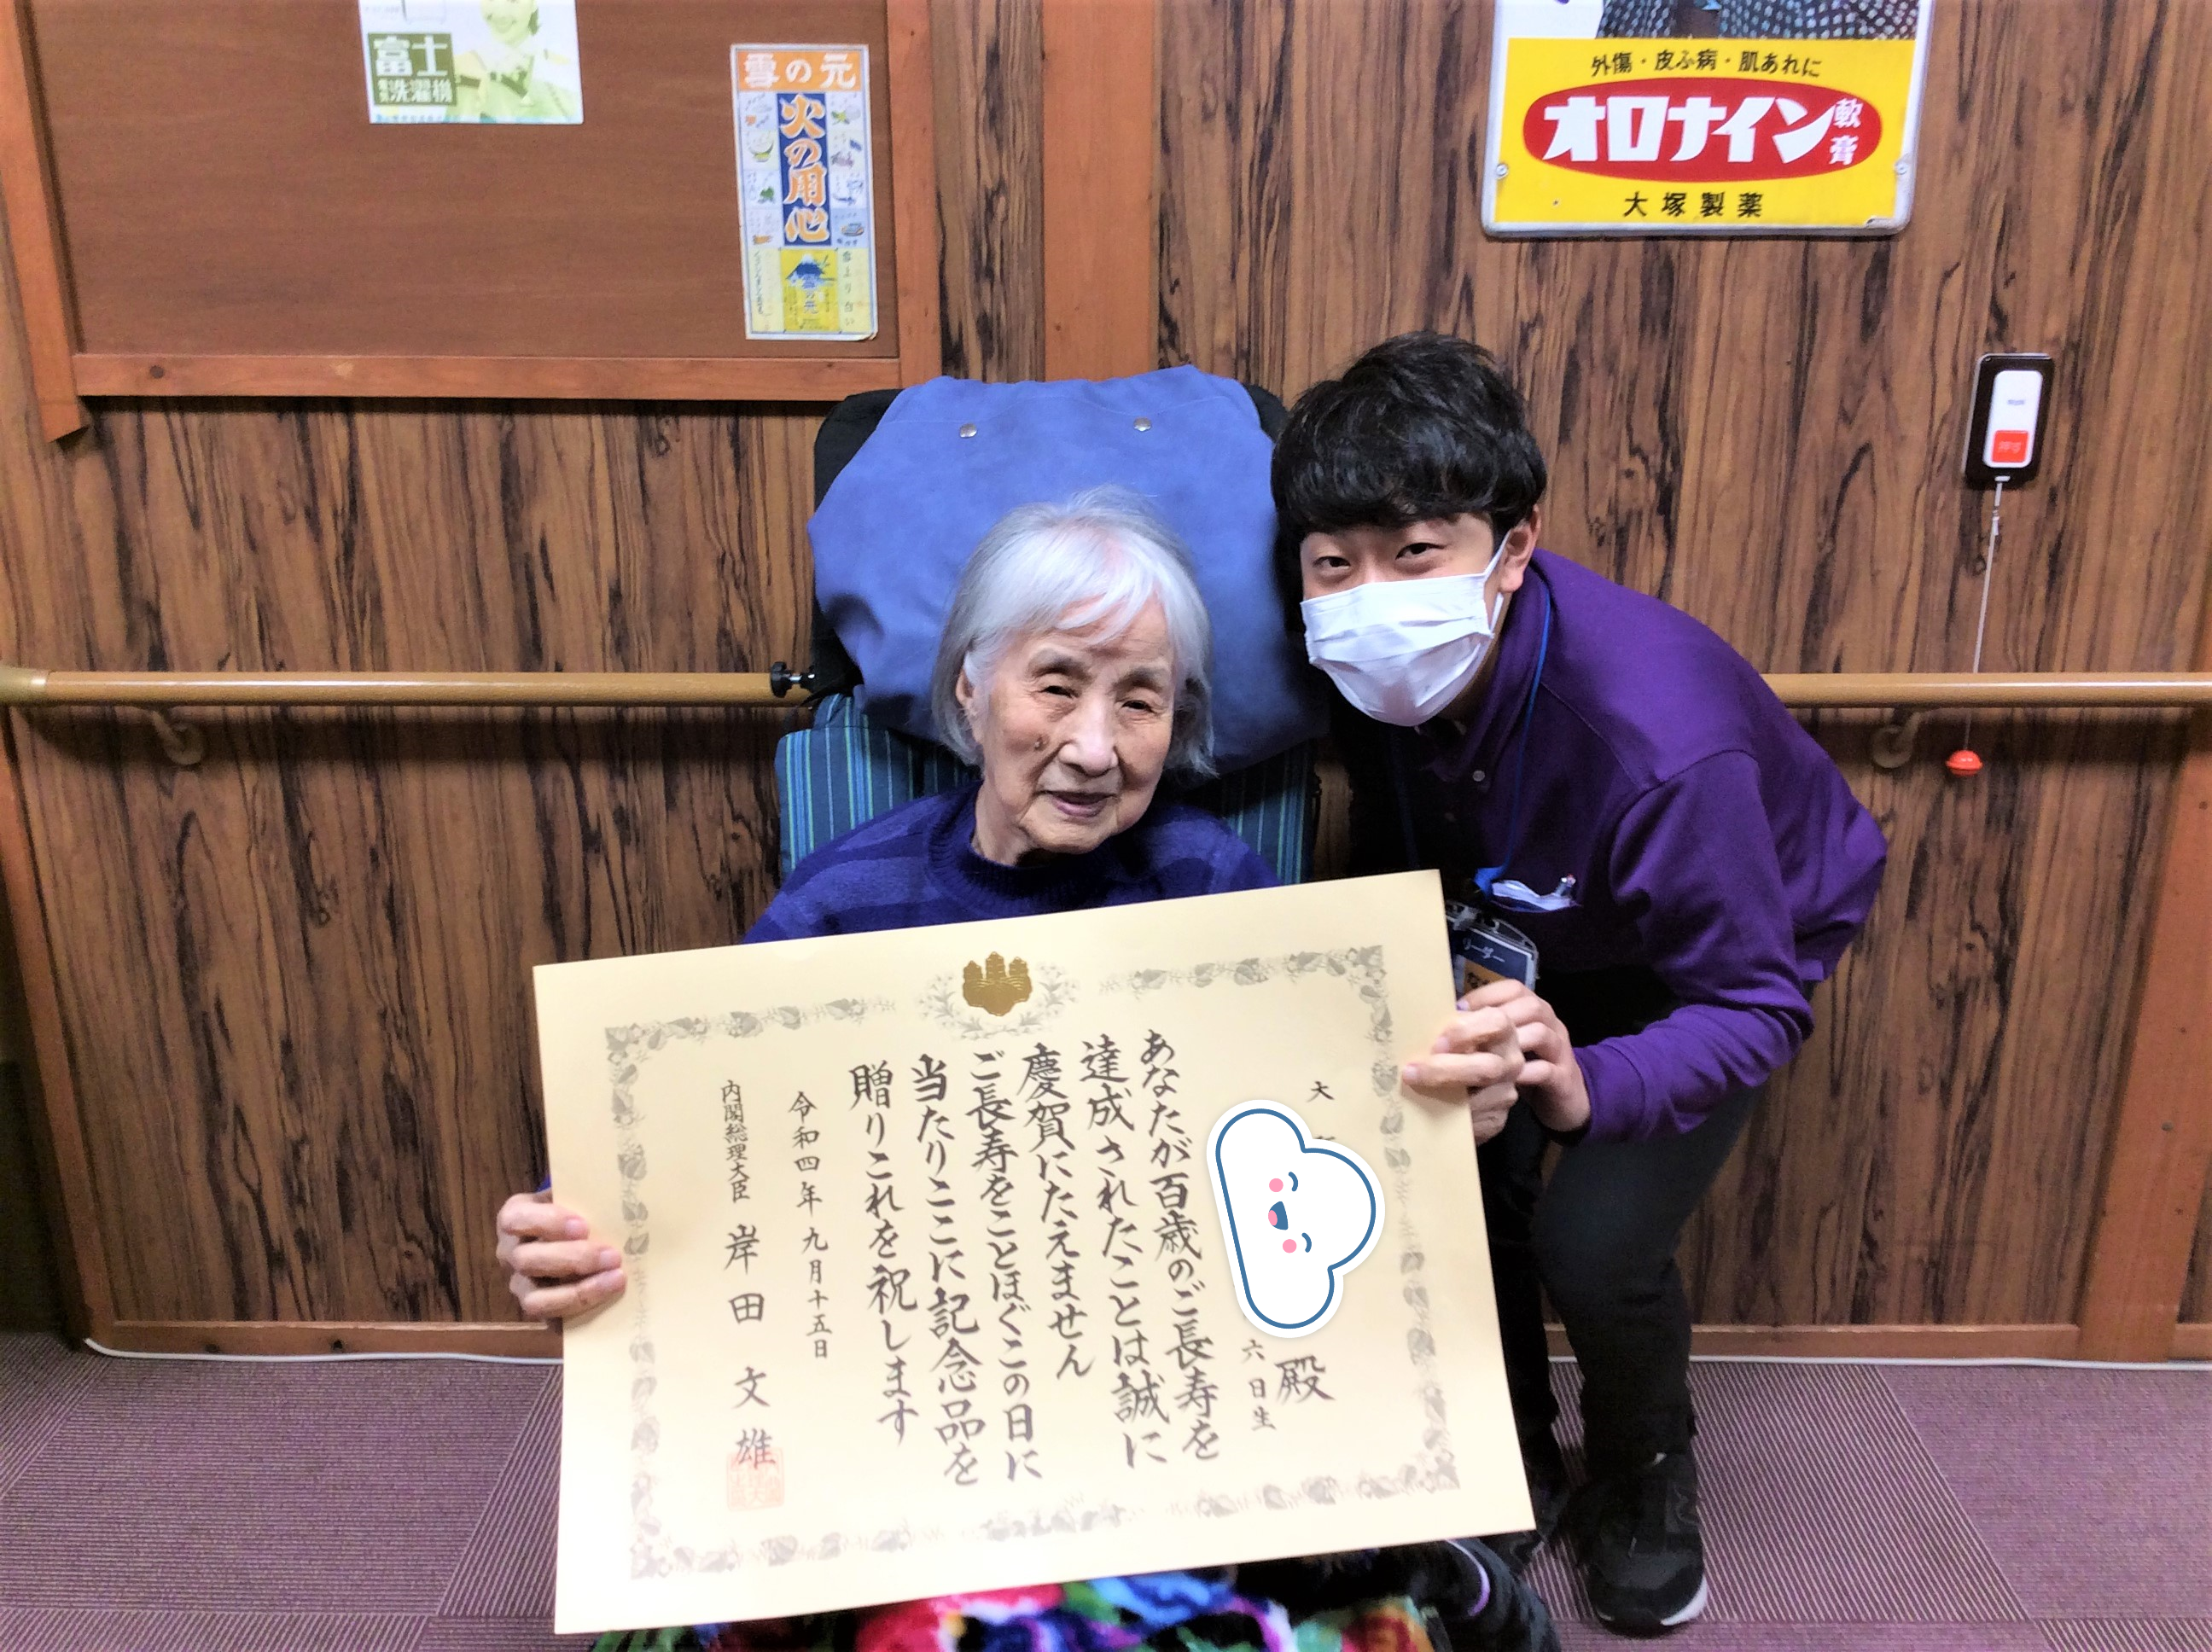 富士
電気洗濯機
雪の元
火の用心
雪より白い
雪の元
外傷・皮ふ病・肌あれに
オロナイン軟膏
大塚製薬
押す
リーダー
大
六日生
殿
あなたが百歳のご長寿を
達成されたことは誠に
慶賀にたえません
ご長寿をことほぐこの日に
当たりここに記念品を
贈りこれを祝します
令和四年九月十五日
内閣総理大臣 岸田文雄